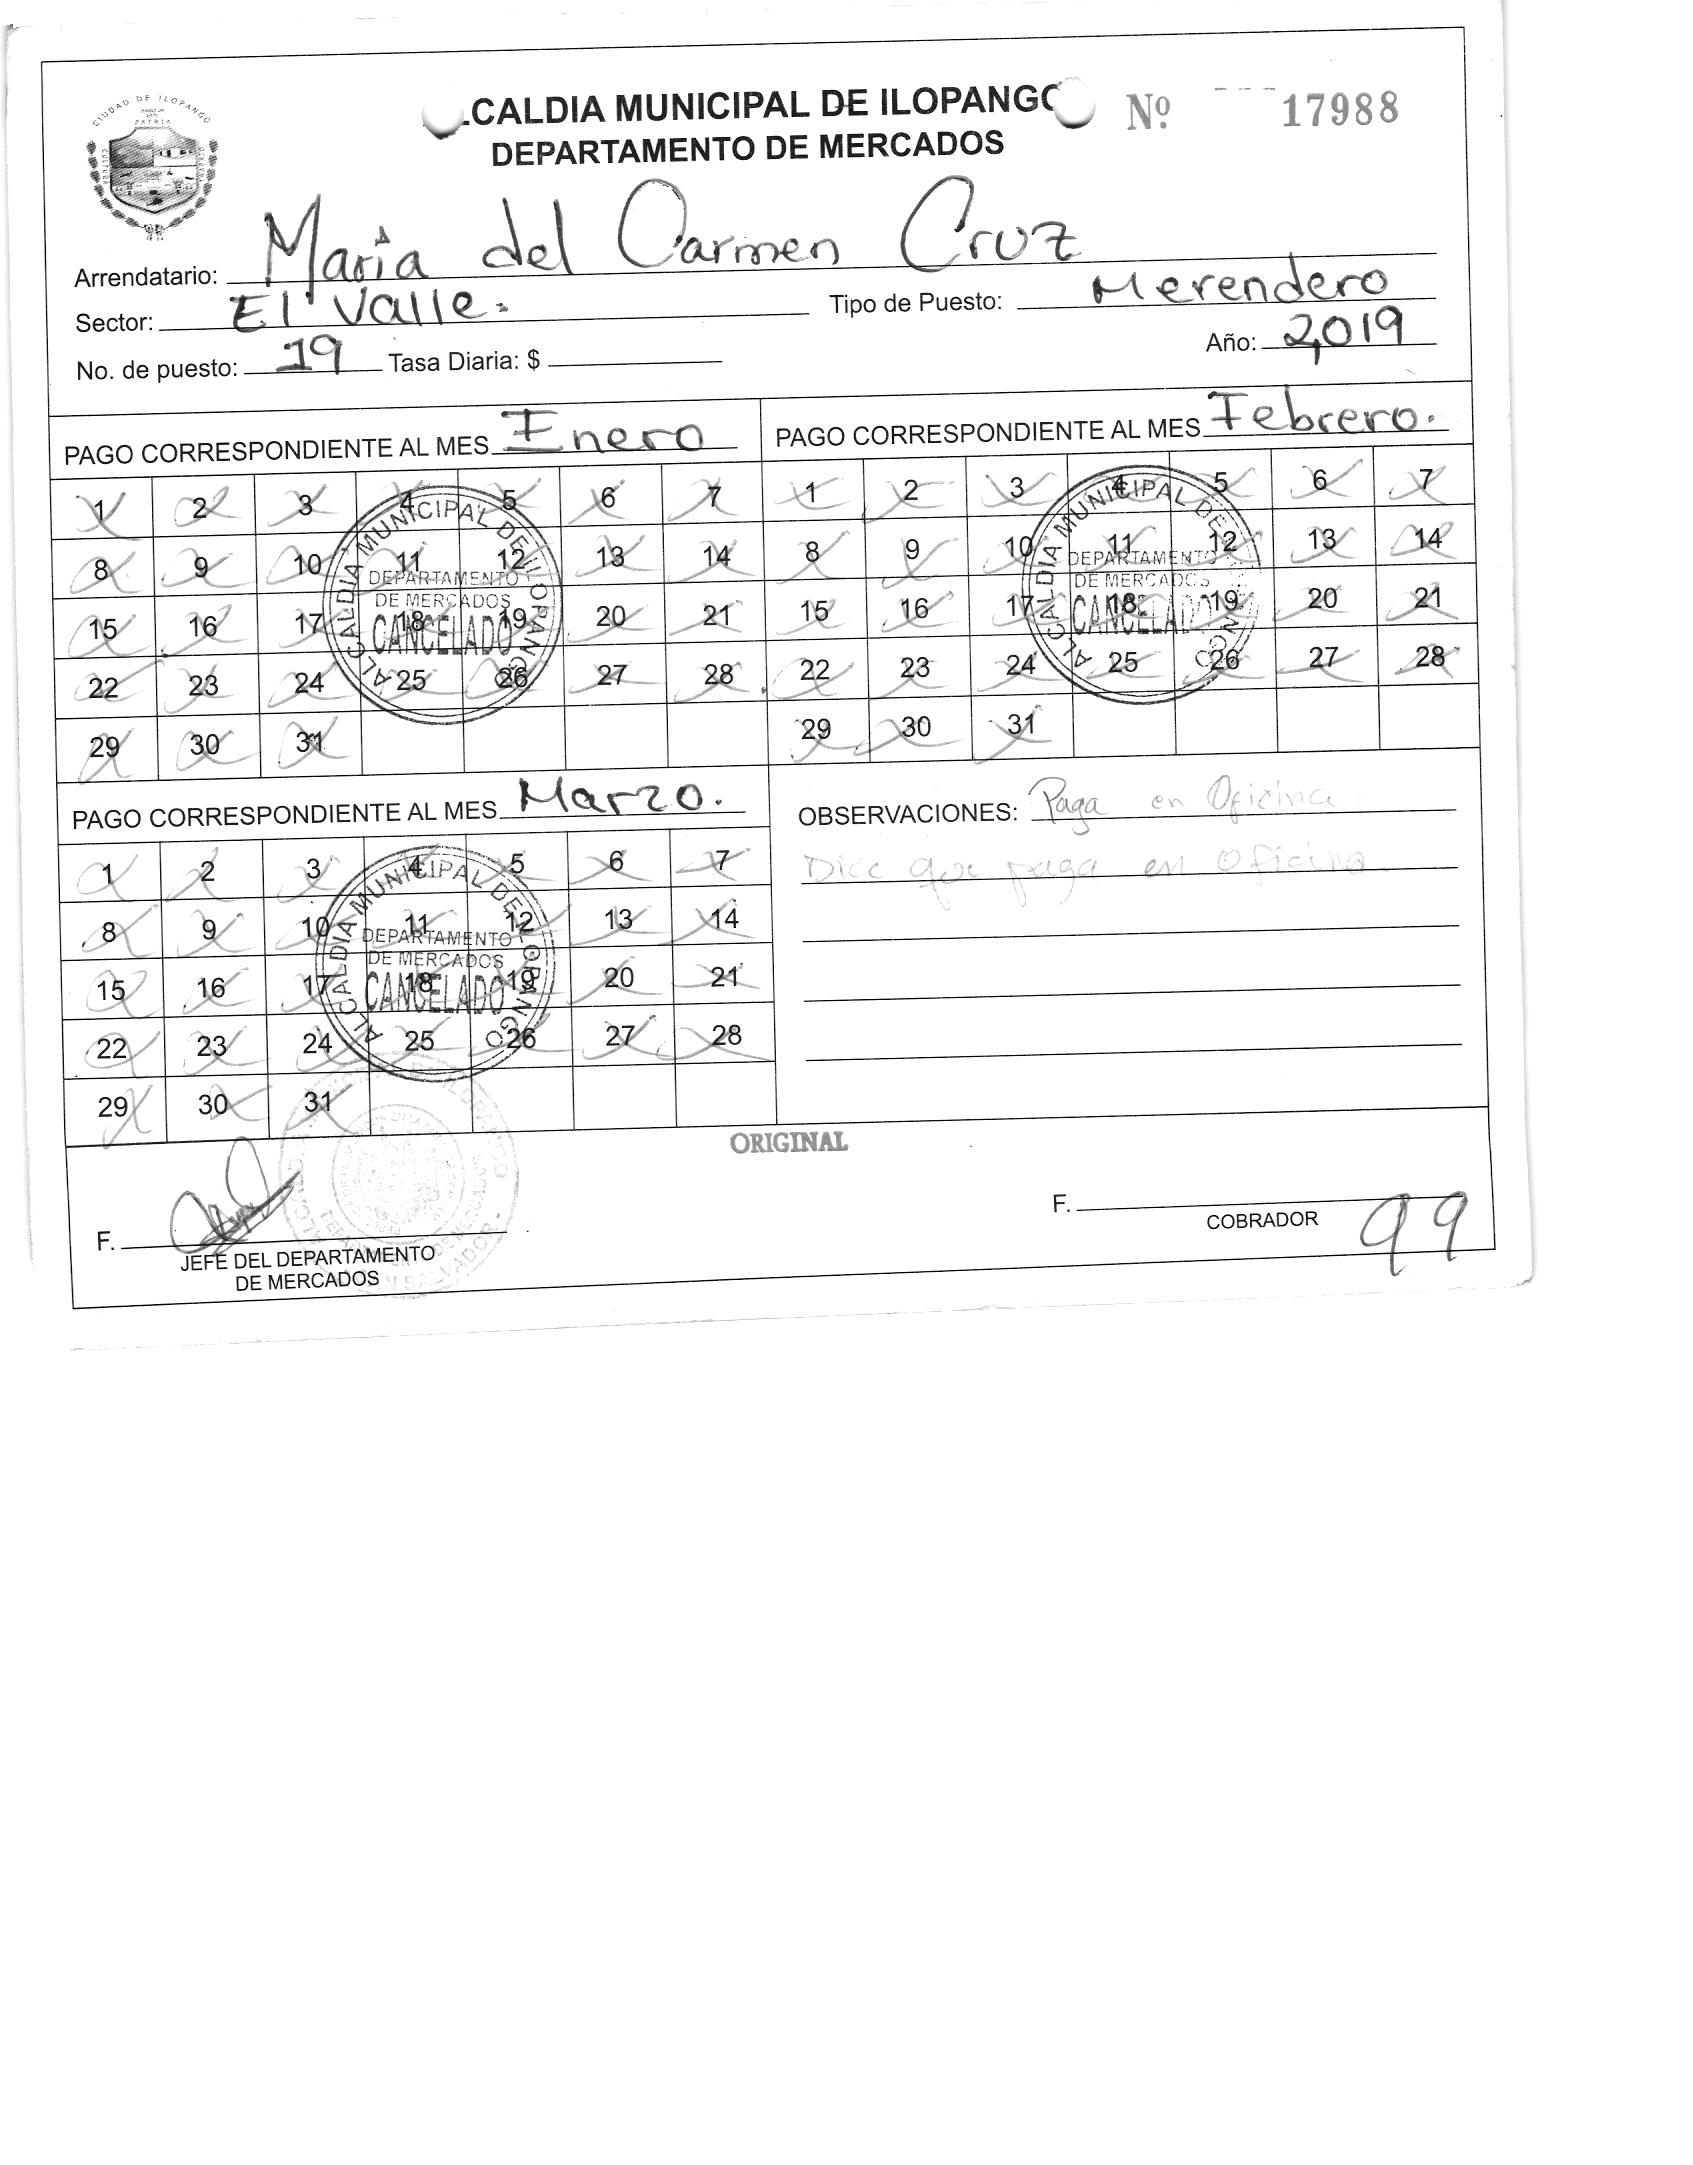 CIUDAD DE ILOPANGO
PATRIA
ALCALDIA MUNICIPAL DE ILOPANGO
DEPARTAMENTO DE MERCADOS
Nº 17988
Arrendatario: Maria del Carmen Cruz
Sector: El Valle. Tipo de Puesto: Merendero
No. de puesto: 19 Tasa Diaria: $ Año: 2,019
PAGO CORRESPONDIENTE AL MES Enero
1 2 3 4 5 6 7
8 9 10 11 12 13 14
15 16 17 18 19 20 21
22 23 24 25 26 27 28
29 30 31
ALCALDIA MUNICIPAL DE ILOPANGO
DEPARTAMENTO
DE MERCADOS
CANCELADO
PAGO CORRESPONDIENTE AL MES Febrero.
1 2 3 4 5 6 7
8 9 10 11 12 13 14
15 16 17 18 19 20 21
22 23 24 25 26 27 28
29 30 31
ALCALDIA MUNICIPAL DE ILOPANGO
DEPARTAMENTO
DE MERCADOS
CANCELADO
PAGO CORRESPONDIENTE AL MES Marzo.
1 2 3 4 5 6 7
8 9 10 11 12 13 14
15 16 17 18 19 20 21
22 23 24 25 26 27 28
29 30 31
ALCALDIA MUNICIPAL DE ILOPANGO
DEPARTAMENTO
DE MERCADOS
CANCELADO
OBSERVACIONES: Paga en Oficina
Dice que paga en Oficina
ORIGINAL
F.
JEFE DEL DEPARTAMENTO
DE MERCADOS
F.
COBRADOR
99